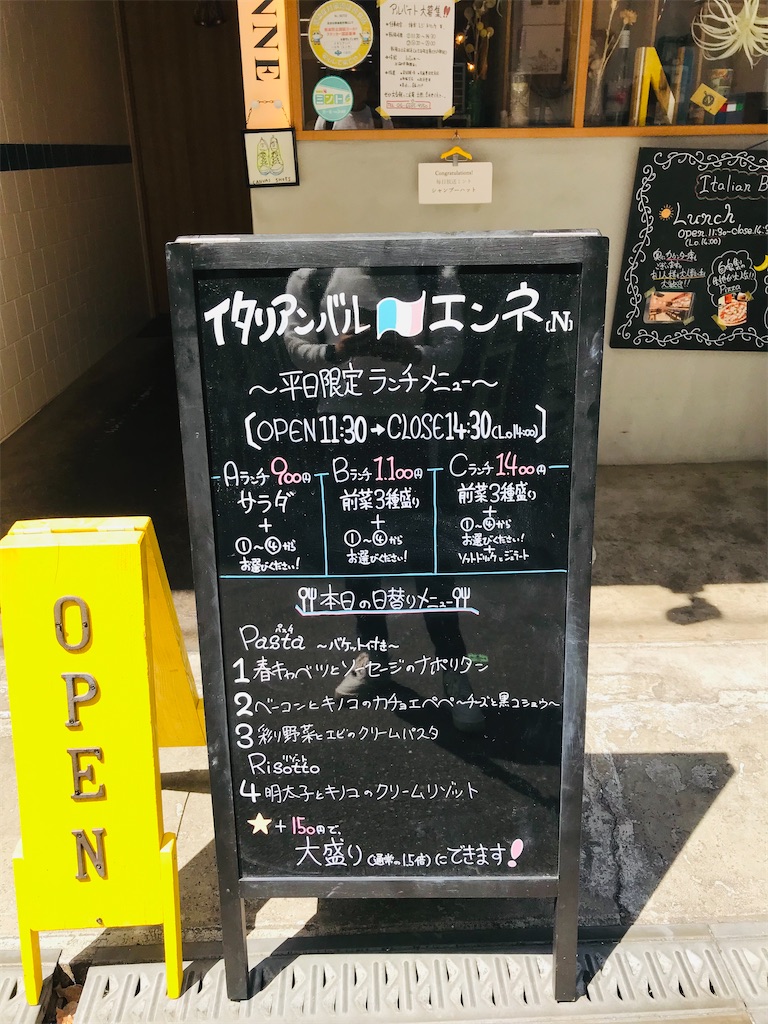 NNE
アルバイト大募集!!
ミント
CANVAS SHOES
Congratulations!
毎日放送ミント
シャンプーハット
Italian B
Lunch
open.11:30~close.14:3
(Lo.14:00)
Pizza
イタリアンバル エンネ [N]
〜平日限定ランチメニュー〜
[OPEN 11:30→CLOSE 14:30(Lo.14:00)]
Aランチ 900円
サラダ
+
①〜④から
お選びください!
Bランチ 1.100円
前菜3種盛り
+
①〜④から
お選びください!
Cランチ 1400円
前菜3種盛り
+
①〜④から
お選びください!
+
ソフトドリンクとジェラート
本日の日替りメニュー
Pasta パスタ 〜バケット付き〜
1 春キャベツとソーセージのナポリタン
2 ベーコンとキノコのカチョエペペ〜チーズと黒コショウ〜
3 彩り野菜とエビのクリームパスタ
Risotto リゾット
4 明太子とキノコのクリームリゾット
★+150円で、
大盛り(通常の1.5倍)にできます!
OPEN